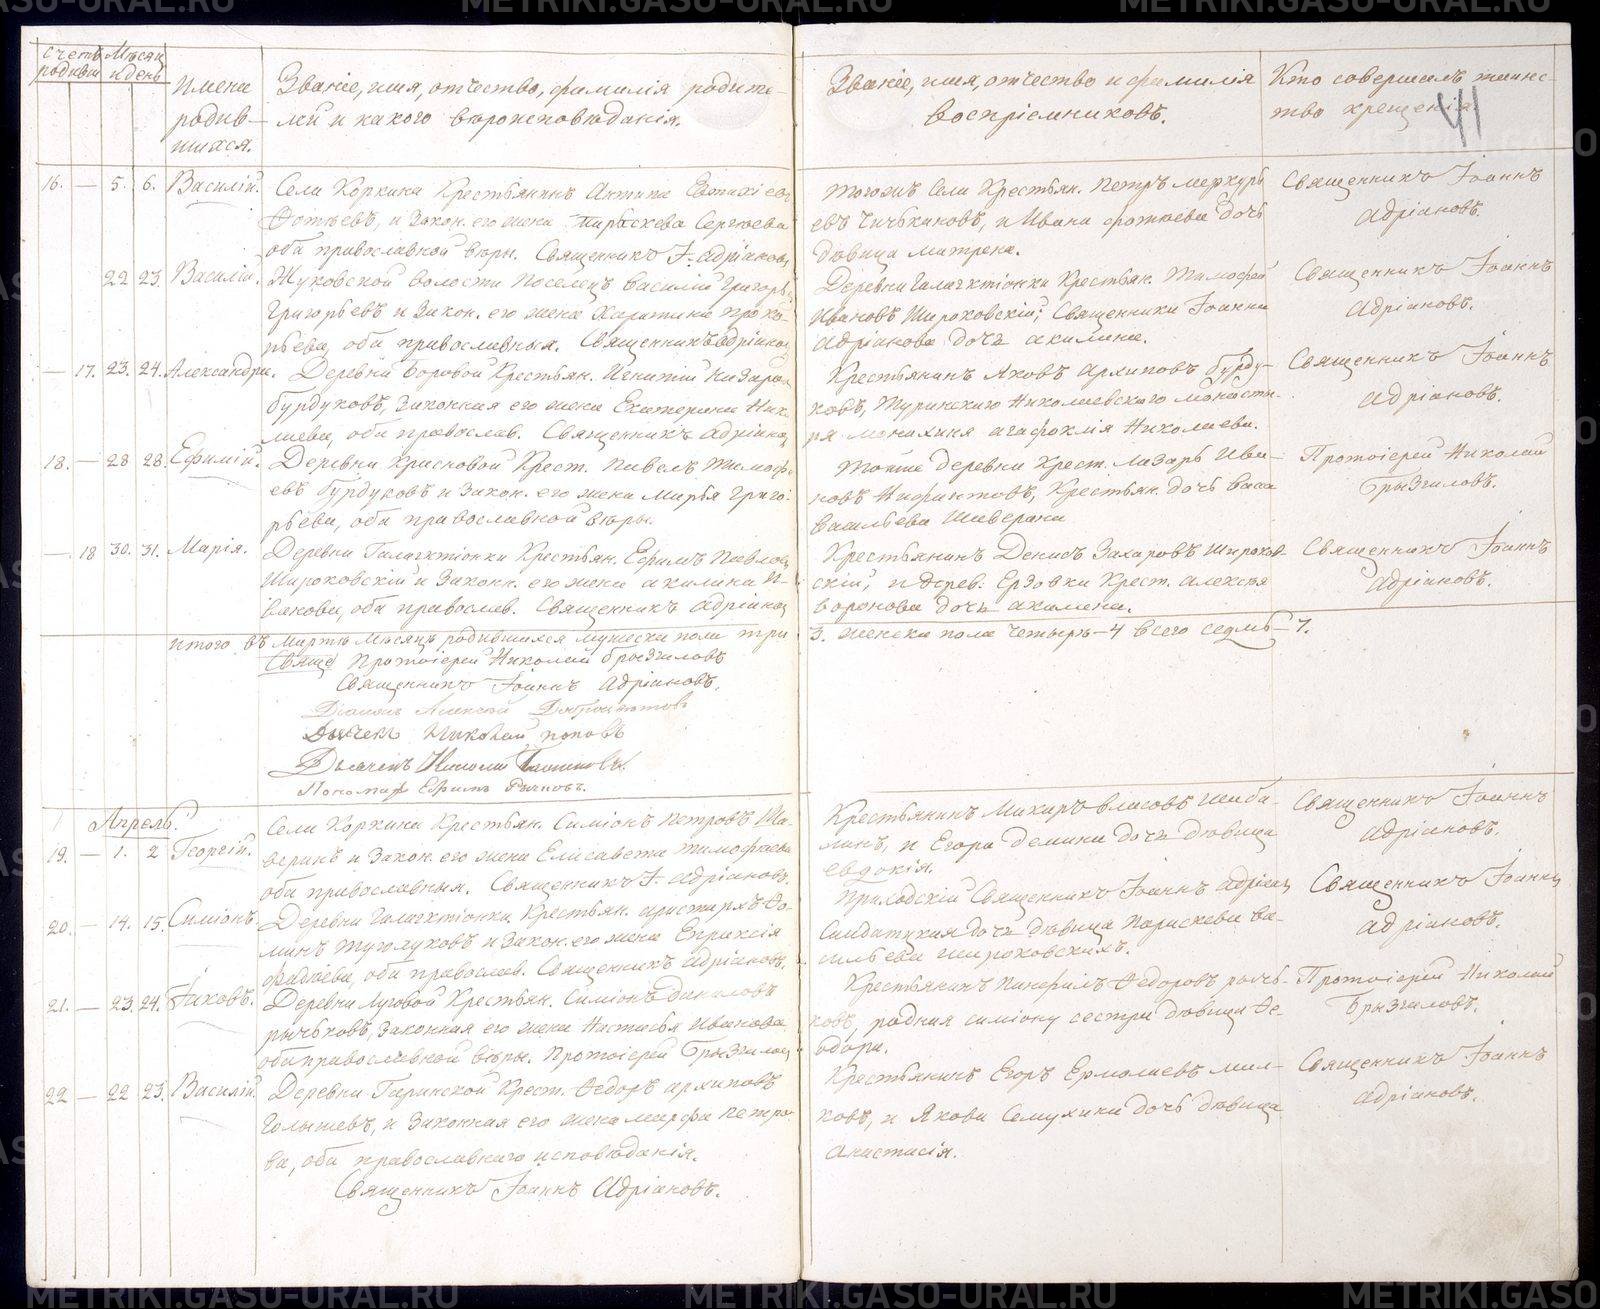 счетъ родивш
Мѣсяц и день
Имена родив-
шихся.
Званіе, имя, отчество, фамилія родите-
лей и какого вѣроисповѣданія.
Званіе, имя, отчество и фамилія
воспріемниковъ.
Кто совершалъ таинс-
тво крещенія.
41
16. — 5. 6. Василій. Села Коркина Крестьянинъ Антипа
Фотѣевъ, и закон. его жена Параскева Сергѣева
оба православной вѣры. Священникъ І. Адріановъ
тогожъ Села Крестьян. Петръ Меркурь
евъ Чичькановъ, и Ивана Фотѣева дочь
дѣвица Матрена.
Священникъ Іоаннъ
Адріановъ.
22 23. Василій. Жуковской волости поселецъ Василій Григорь
Григорьевъ и закон. его жена Харитина Проко-
рьева, оба православныя. Священникъ Адріанов
Деревни Галактіонки Крестьян. Тимофей
Ивановъ Широковскій; Священника Іоанна
Адріанова дочь Акилина.
Священникъ Іоаннъ
Адріановъ.
— 17. 23. 24. Александра. Деревни Боровой Крестьян. Игнатій Назаров
Бурдуковъ, законная его жена Екатерина Ник-
лаева, оба православ. Священникъ Адріанов
Крестьянинъ Яковъ Архиповъ Бурду-
ковъ, Туринскаго Николаевскаго монасты-
ря монахиня Агафоклія Николаева.
Священникъ Іоаннъ
Адріановъ.
18. — 28 28. Ефимій. Деревни Красновой Крест. Павелъ Тимоф-
евъ Бурдуковъ и закон. его жена Марья Григо-
рьева, оба православной вѣры.
Тойже деревни Крест. Лазарь Ива-
новъ Нифантовъ, Крестьян. дочь Васса
Васильева Шаверина
Протоіерей Николай
Брызгаловъ.
— 18 30. 31. Марія. Деревни Галактіонки Крестьян. Ефимъ Павлов
Широковскій и законн. его жена Акилина И-
ванова, оба православ. Священникъ Адріанов
Крестьянинъ Денисъ Захаровъ Широков-
скій, и дерев. Ерзовки Крест. Алексѣя
Воронова дочь Акилина.
Священникъ Іоаннъ
Адріановъ.
итого въ Мартѣ Мѣсяцѣ родившихся мужеска пола три
3. женска пола четыре — 4 всего седмь — 7.
Свяще Протоіерей Николай Брызгаловъ
Священникъ Іоаннъ Адріановъ.
Діаконъ Алексѣй
Дьячекъ Николай Поповъ
Дьячекъ Николай
Пономарь Ефимъ
Апрель.
19. — 1. 2 Георгій. Села Коркина Крестьян. Симіонъ Петровъ Ша-
веринъ и закон. его жена Елисавета Тимофѣева
оба православныя. Священникъ І. Адріановъ.
Крестьянинъ Макаръ Власовъ Шаба-
линъ, и Егора Демина дочь дѣвица
Евдокія.
Священникъ Іоаннъ
Адріановъ.
20. — 14. 15. Симіонъ. Деревни Галактіонки Крестьян. Аристархъ Фо-
минъ и закон. его жена Епраксія
Фадѣева, оба православ. Священникъ Адріановъ.
Приходскій Священникъ Іоаннъ Адріанов
Салдатская дочь дѣвица Параскева Ва-
сильева Широковскихъ.
Священникъ Іоаннъ
Адріановъ.
21. — 23. 24. Іаковъ. Деревни Луговой Крестьян. Симіонъ Даниловъ
Рычьковъ, законная его жена Настасья Иванова
оба православной вѣры. Протоіерей Брызгалов
Крестьянинъ Панфилъ Федоровъ Рычь-
ковъ, родная Симіону сестра дѣвица Фе-
одора.
Протоіерей Николай
Брызгаловъ.
22 — 22 23. Василій. Деревни Гаринской Крест. Федоръ Архиповъ
Голышевъ, и законная его жена Марфа Петро-
ва, оба православнаго исповѣданія.
Священникъ Іоаннъ Адріановъ.
Крестьянинъ Егоръ Ермолаевъ Мал-
ковъ, и Якова Семухина дочь дѣвица
Анастасія.
Священникъ Іоаннъ
Адріановъ.
METRIKI.GASO-URAL.RU